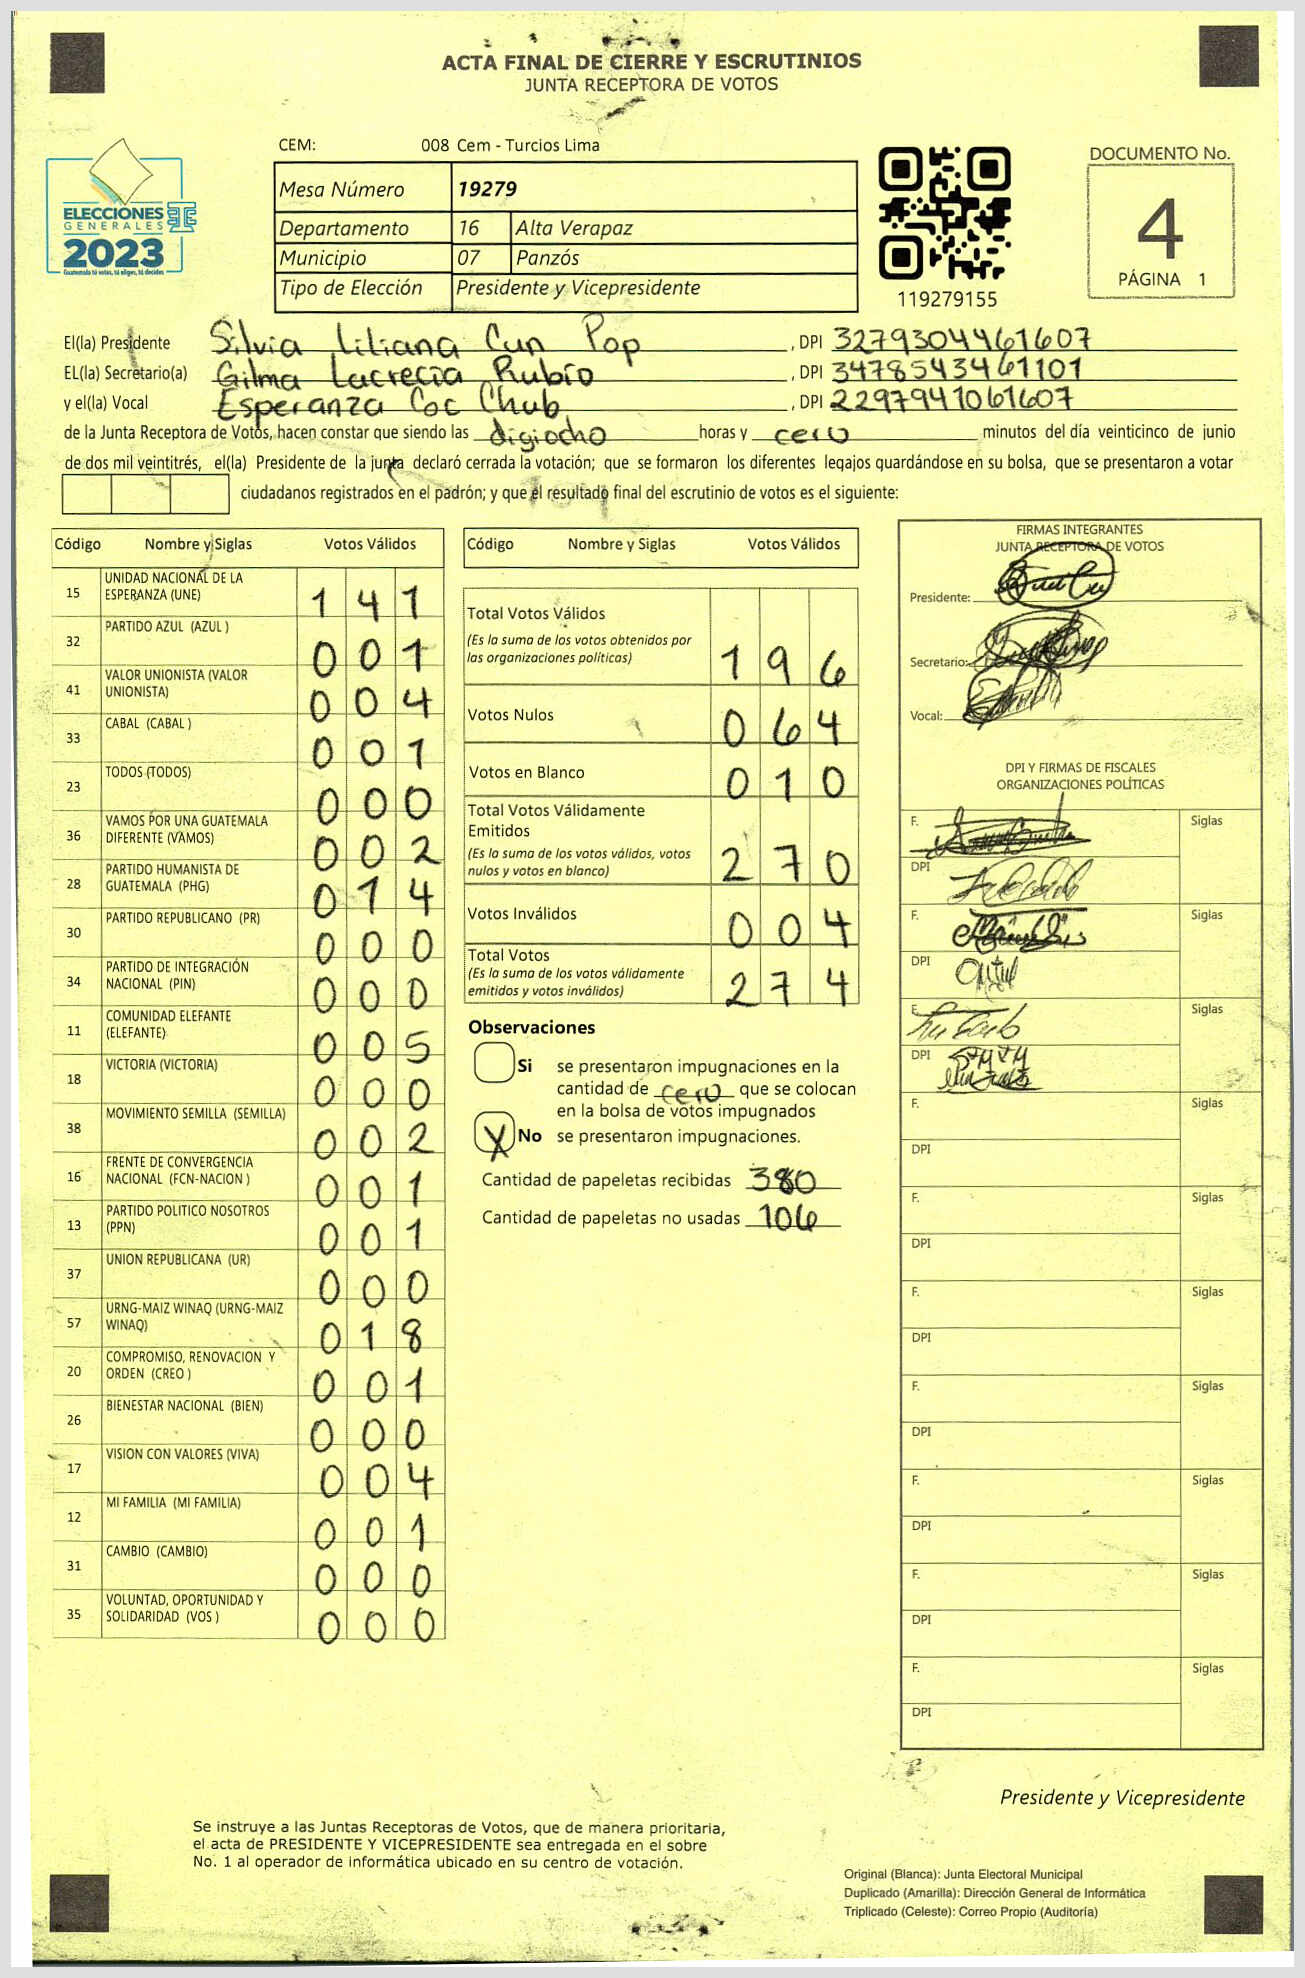 ACTA FINAL DE CIERRE Y ESCRUTINIOS
JUNTA RECEPTORA DE VOTOS
CEM: 008 Cem - Turcios Lima
ELECCIONES
GENERALES
2023
Guatemala tú votas, tú eliges, tú decides
Mesa Número 19279
Departamento 16 Alta Verapaz
Municipio 07 Panzós
Tipo de Elección Presidente y Vicepresidente
119279155
DOCUMENTO No.
4
PÁGINA 1
El(la) Presidente Silvia Liliana Cun Pop, DPI 3279304461607
EL(la) Secretario(a) Gilma Lacrecia Rubio, DPI 3478543461101
y el(la) Vocal Esperanza Coc Chub, DPI 2297941061607
de la Junta Receptora de Votos, hacen constar que siendo las digiocho horas y cero minutos del día veinticinco de junio
de dos mil veintitrés, el(la) Presidente de la junta declaró cerrada la votación; que se formaron los diferentes legajos guardándose en su bolsa, que se presentaron a votar
ciudadanos registrados en el padrón; y que el resultado final del escrutinio de votos es el siguiente:
Código Nombre y Siglas Votos Válidos
15 UNIDAD NACIONAL DE LA ESPERANZA (UNE) 1 4 1
32 PARTIDO AZUL (AZUL ) 0 0 1
41 VALOR UNIONISTA (VALOR UNIONISTA) 0 0 4
33 CABAL (CABAL ) 0 0 1
23 TODOS (TODOS) 0 0 0
36 VAMOS POR UNA GUATEMALA DIFERENTE (VAMOS) 0 0 2
28 PARTIDO HUMANISTA DE GUATEMALA (PHG) 0 1 4
30 PARTIDO REPUBLICANO (PR) 0 0 0
34 PARTIDO DE INTEGRACIÓN NACIONAL (PIN) 0 0 0
11 COMUNIDAD ELEFANTE (ELEFANTE) 0 0 5
18 VICTORIA (VICTORIA) 0 0 0
38 MOVIMIENTO SEMILLA (SEMILLA) 0 0 2
16 FRENTE DE CONVERGENCIA NACIONAL (FCN-NACION ) 0 0 1
13 PARTIDO POLITICO NOSOTROS (PPN) 0 0 1
37 UNION REPUBLICANA (UR) 0 0 0
57 URNG-MAIZ WINAQ (URNG-MAIZ WINAQ) 0 1 8
20 COMPROMISO, RENOVACION Y ORDEN (CREO ) 0 0 1
26 BIENESTAR NACIONAL (BIEN) 0 0 0
17 VISION CON VALORES (VIVA) 0 0 4
12 MI FAMILIA (MI FAMILIA) 0 0 1
31 CAMBIO (CAMBIO) 0 0 0
35 VOLUNTAD, OPORTUNIDAD Y SOLIDARIDAD (VOS ) 0 0 0
Código Nombre y Siglas Votos Válidos
Total Votos Válidos
(Es la suma de los votos obtenidos por
las organizaciones políticas) 1 9 6
Votos Nulos 0 6 4
Votos en Blanco 0 1 0
Total Votos Válidamente
Emitidos
(Es la suma de los votos válidos, votos
nulos y votos en blanco) 2 7 0
Votos Inválidos 0 0 4
Total Votos
(Es la suma de los votos válidamente
emitidos y votos inválidos) 2 7 4
Observaciones
Si se presentaron impugnaciones en la
cantidad de cero que se colocan
en la bolsa de votos impugnados
X No se presentaron impugnaciones.
Cantidad de papeletas recibidas 380
Cantidad de papeletas no usadas 106
FIRMAS INTEGRANTES
JUNTA RECEPTORA DE VOTOS
Presidente:
Secretario:
Vocal:
DPI Y FIRMAS DE FISCALES
ORGANIZACIONES POLÍTICAS
F. Siglas
DPI
F. Siglas
DPI
F. Siglas
DPI
F. Siglas
DPI
F. Siglas
DPI
F. Siglas
DPI
F. Siglas
DPI
F. Siglas
DPI
F. Siglas
DPI
F. Siglas
DPI
Presidente y Vicepresidente
Se instruye a las Juntas Receptoras de Votos, que de manera prioritaria,
el acta de PRESIDENTE Y VICEPRESIDENTE sea entregada en el sobre
No. 1 al operador de informática ubicado en su centro de votación.
Original (Blanca): Junta Electoral Municipal
Duplicado (Amarilla): Dirección General de Informática
Triplicado (Celeste): Correo Propio (Auditoría)